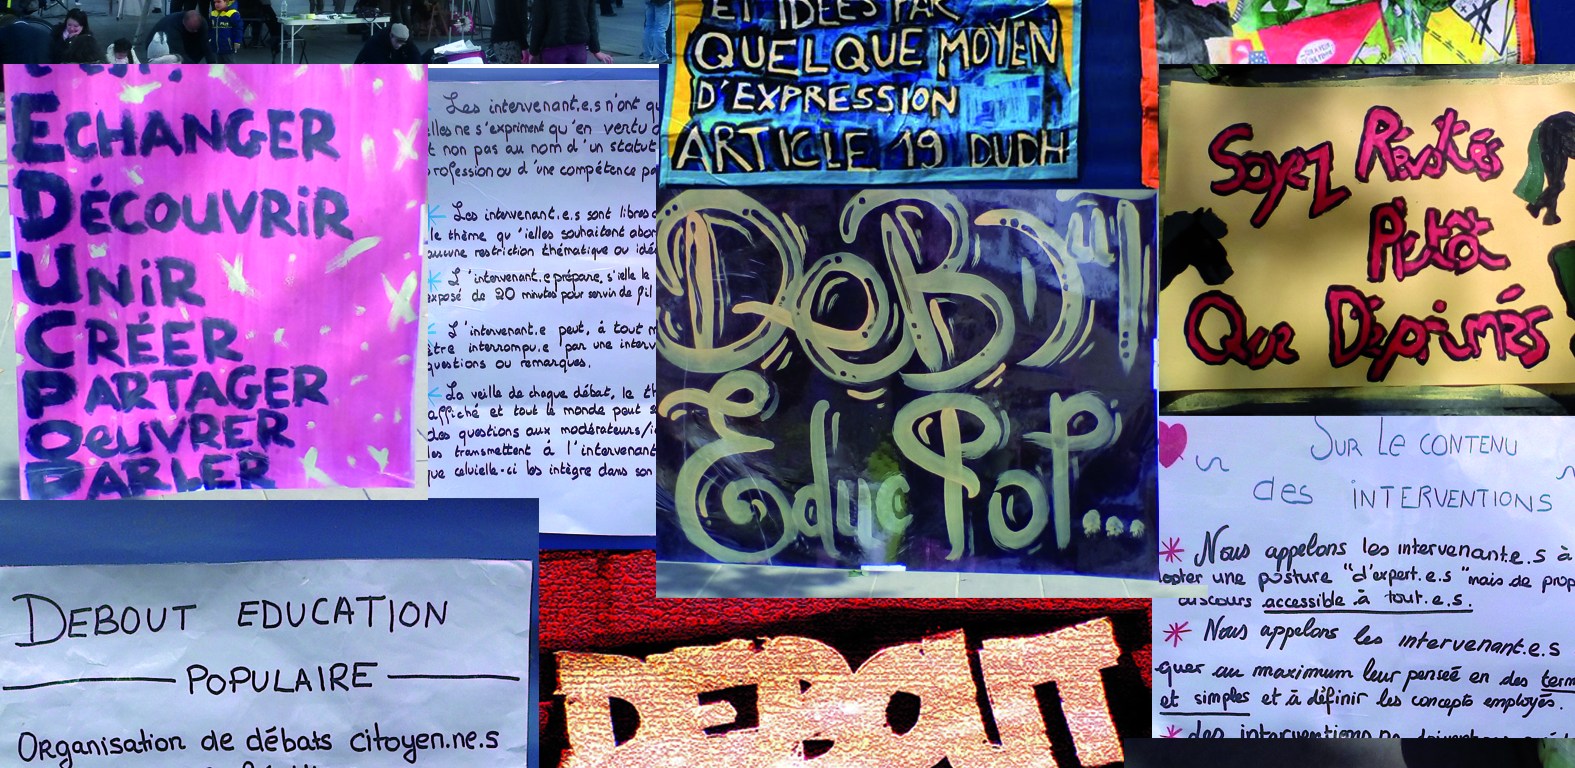 ECHANGER
DÉCOUVRIR
UNIR
CRÉER
PARTAGER
OEUVRER
PARLER
Les intervenant.e.s n'ont
elles ne s'expriment qu'en vertu
non pas au nom d'un statut
profession ou d'une compétence
Les intervenant.e.s sont libres
le thème qu'ielles souhaitent
restriction thématique ou
L'intervenant.e prépare, s'ielle le
exposé de 20 minutes pour servir de fil
L'intervenant.e peut, à tout
être interrompu.e par une
questions ou remarques.
La veille de chaque débat, le
affiché et tout le monde peut
des questions aux modérateurs/
les transmettent à l'intervenant
que celuielle-ci les intègre dans son
ET IDÉES PAR
QUELQUE MOYEN
D'EXPRESSION
ARTICLE 19 DUDH
DEBOUT
Educ PoP...
Soyez Révoltés
Plutôt
Que Déprimés
SUR LE CONTENU
des INTERVENTIONS
Nous appelons les intervenant.e.s à
une posture "d'expert.e.s" mais de
discours accessible à tout.e.s.
Nous appelons les intervenant.e.s
quer au maximum leur pensée en des
et simples et à définir les concepts employés.
des interventions ne
DEBOUT EDUCATION
POPULAIRE
Organisation de débats citoyen.ne.s
DEBOUT